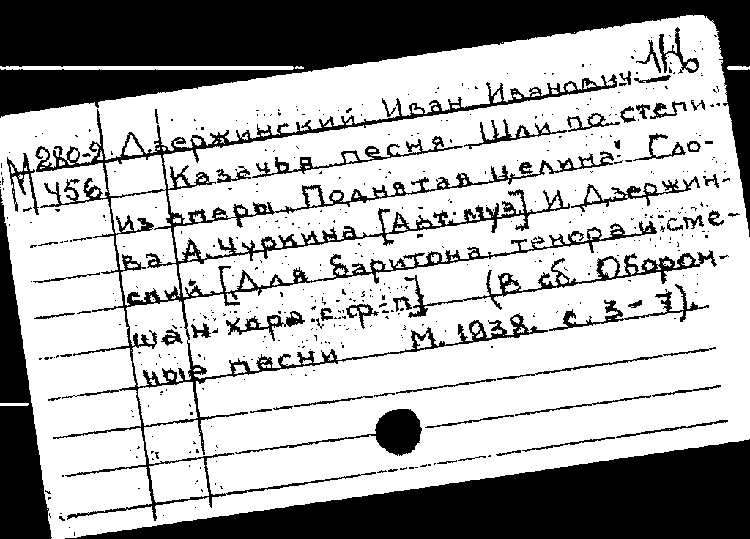 М 280-2 Дзержинский, Иван Иванович.
456. Казачья песня. Шли по степи...
Из оперы „Поднятая целина". Сло-
ва А. Чуркина. [Авт. муз] И. Дзержин-
ский. [Для баритона, тенора и сме-
шан. хора с ф.-п] (В сб. Оборон-
ные песни М. 1938. с. 3-7).